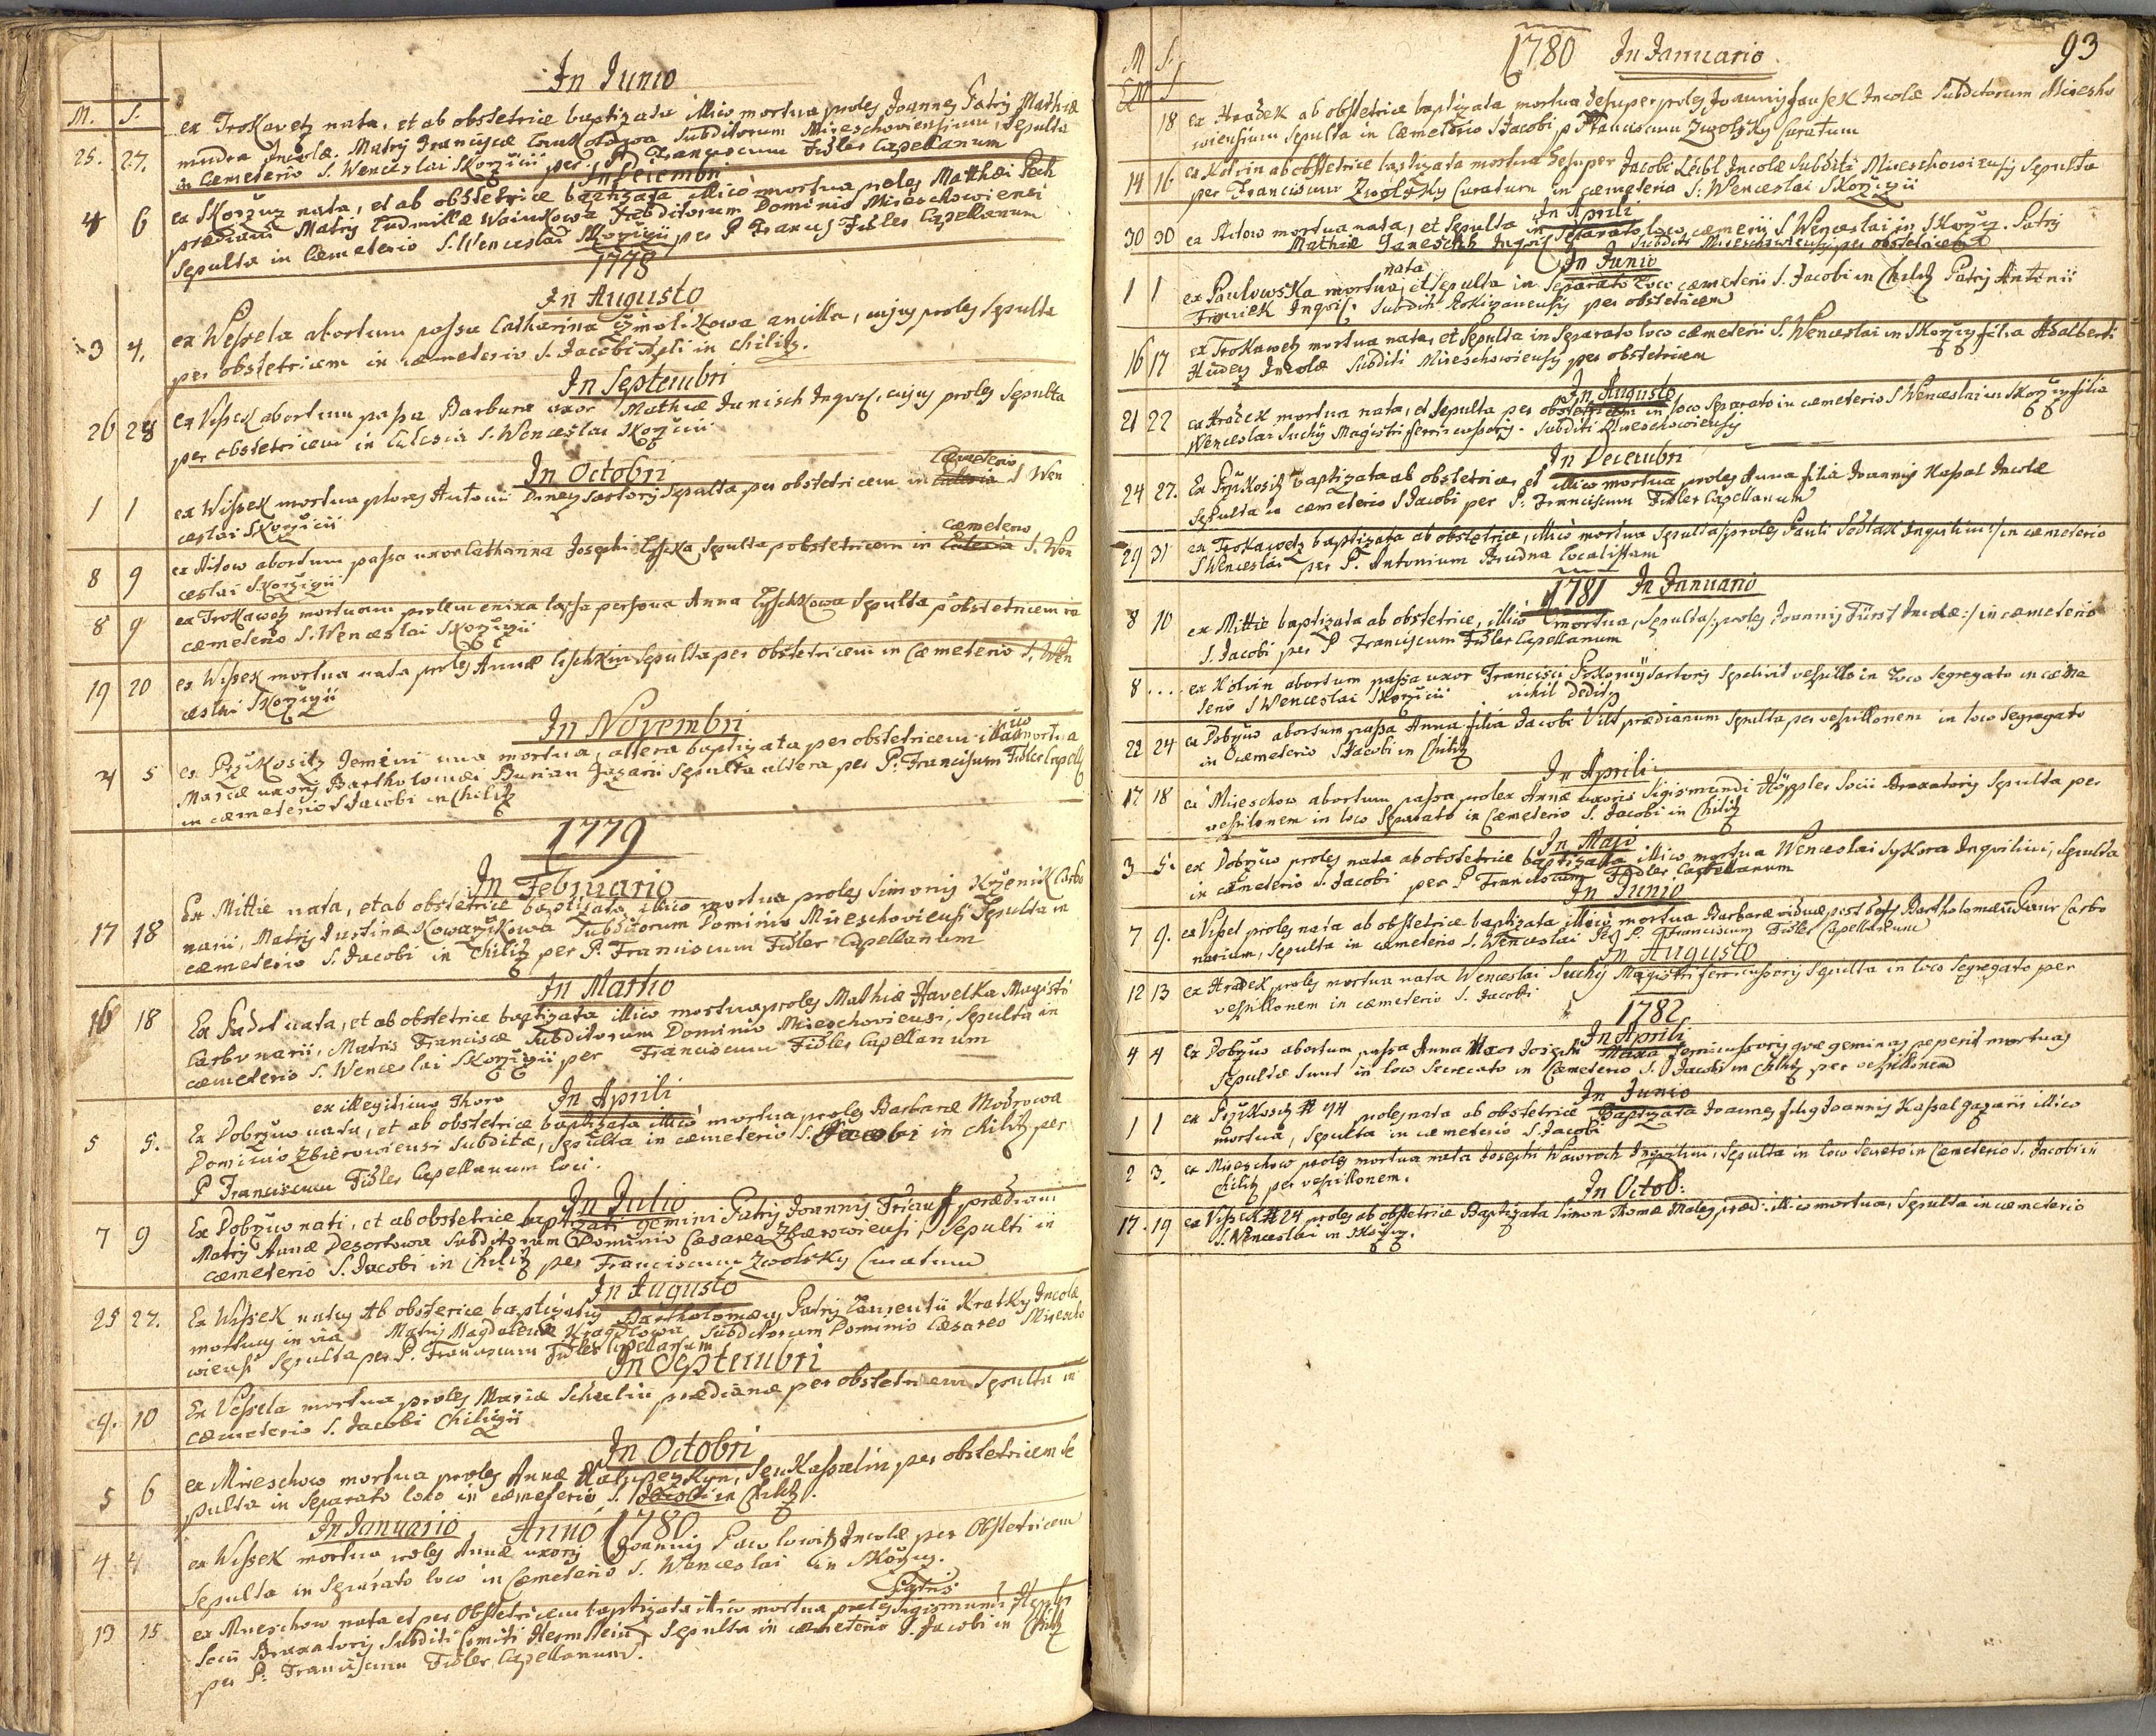 In Junio
M. S.
25. 27. ex Trokavetz nata, et ab obstetrice baptizata illico mortua proles Joannes Patris Mathiæ
mudra Incolæ. Matris Franciscæ Subditorum Mireschoviensium, Sepulta
in Cæmeterio S. Wenceslai Skorzicii per P. Franciscum Fidler Capellanum
In Decembri
4 6 ex Skorzicz nata, et ab obstetrice baptizata illico mortua proles Matthæi Pech
prædiani Matris Ludmillæ Subditorum Dominio Mireschowiensi
Sepulta in Cæmeterio S. Wenceslai Skorzicii per P Franc: Fidler Capellanum
1778
In Augusto
3 4. ex Wessela abortum passa Catharina ancilla, cujus proles Sepulta
per obstetricem in cæmeterio S. Jacobi Apli in Chilitz.
In Septembri
26 28 ex Vissek abortum passa Barbara uxor Mathiæ Janisch Inqui, cujus proles Sepulta
per obstetricem in Ecclesia S. Wenceslai Skorzicii
In Octobri
cæmeterio
1 1 ex Wissek mortua proles Antonii Sartoris Sepulta per obstetricem in Ecclesia S Wen
ceslai Skorzicii
cæmeterio
8 9 ex Aitow abortum passa uxor Catharina Josephi Sepulta p obstetricem in Ecclesia S. Wen
ceslai Skorzicii
8 9 ex Trokawetz mortuam prolem enixa lapsa persona Anna Sepulta p obstetricem in
cæmeterio S. Wenceslai Skorzicii
19 20 ex Wissek mortua nata proles Annæ Sepulta per obstetricem in Cæmeterio S. Wen
ceslai Skorzicii
In Novembri
4 5 ex Przikositz Gemini una mortua, altera baptizata per obstetricem illico mortua
Mariæ uxoris Bartholomæi Burian Gazarii Sepulta altera per P. Franciscum Fidler Capell
in cæmeterio S Jacobi in Chilitz
1779
In Februario
17 18 Ex Mittie nata, et ab obstetrice baptizata illico mortua proles Simonis Krzenik Carbo
narii, Matris Justinæ Kowarzikowa Subditorum Dominio Mireschoviensi Sepulta in
cæmeterio S. Jacobi in Chilitz per P. Franciscum Fidler Capellanum
In Martio
16 18 Ex Padrt nata, et ab obstetrice baptizata illico mortua proles Mathiæ Havelka Magistri
Carbonarii, Matris Franciscæ Subditorum Dominio Mireschoviensi, Sepulta in
cæmeterio S. Wenceslai Skorzicii per Franciscum Fidler Capellanum
In Aprili
ex illegitimo Thoro
5 5. Ex Dobrziw nata, et ab obstetrice baptizata illico mortua proles Barbaræ Modrowa
Dominio Zbierowiensi Subditæ, Sepulta in cæmeterio S. Jacobi in Chilitz per
P Franciscum Fidler Capellanum loci.
In Julio
7 9 Ex Dobrziw nati, et ab obstetrice baptizati gemini Patris Joannis prædiani
Matris Annæ Desortowa Subditorum Dominio Cæsareo Zbierowiensi, Sepulti in
cæmeterio S. Jacobi in Chilitz per Franciscum Zwolsky Curatum
In Augusto
25 27. Ex Wissek natus Ab obstetrice baptizatus Bartholomæus Patris Laurentii Kratky Incolæ
mortuus in via Matris Magdalenæ Subditorum Dominio Cæsareo Mirescho
wiensi Sepulta per P. Franciscum Fidler Capellanum
In Septembri
9. 10 Ex Vessela mortua proles Mariæ prædianæ per obstetricem Sepulta in
cæmeterio S. Jacobi Chilizii
In Octobri
5 6 ex Mireschow mortua proles Annæ seu per obstetricem Se
pulta in Separato loco in cæmeterio S. Jacobi in Chilitz.
In Januario Anno 1780
4 4 ex Wissek mortua proles Annæ uxoris Joannis Pawlowitz Incolæ per Obstetricem
Sepulta in Separato loco in Cæmeterio S. Wenceslai in Skorzicz.
Patris
13 15 ex Mireschow nata et per Obstetricem baptizata illico mortua proles Sigismundi Hepler
Socii Braxatoris Subditi Comiti Sepulta in cæmeterio S. Jacobi in Chilitz
per P. Franciscum Fidler Capellanum.
93
1780 In Januario
M S.
18 ex Hradek ab obstetrice baptizata mortua desuper proles Joannis Incolæ Subditorum Mirescho
wiensium Sepulta in Cæmeterio S Jacobi p Franciscum Zwolsky Curatum
14 16 ex Kotrin ab obstetrice baptizata mortua desuper Jacobi Leibl Incolæ Subditi Mireschowiensis Sepulta
per Franciscum Zwolsky Curatum in cæmeterio S. Wenceslai Skorzicii
In Aprili
30 30 ex Aitow mortua nata, et Sepulta in Separato loco cæmeterii S Wenceslai in Skorzicz. Patris
Mathiæ Janesch Inquil Subditi Mireschowiensis per obstetricem
In Junio
nata
1 1 ex Pawlowska mortua, et Sepulta in Separato loco cæmeterii S. Jacobi in Chilitz Patris Antonii
Inquil. Subditi Rokizanensis per obstetricem
16 17 ex Trokawetz mortua nata, et Sepulta in Separato loco cæmeterii S. Wenceslai in Skorzicz filia Adalberti
Hudez Incolæ Subditi Mireschowiensis per obstetricem
In Augusto
21 22 ex Hradek mortua nata, et Sepulta per obstetricem in loco Separato in cæmeterio S Wenceslai in Skorzicz filia
Wenceslai Suchy Magistri ferricussoris. Subditi Mireschowiensis
In Decembri
24 27. Ex Przikositz baptizata ab obstetrice, et illico mortua proles Anna filia Joannis Kassal Incolæ
Sepulta in cæmeterio S Jacobi per P: Franciscum Fidler Capellanum
29 31 ex Trokawetz baptizata ab obstetrice, illico mortua Sepulta /: proles Pauli Sedlak Inquilini :/ in cæmeterio
S Wenceslai per P. Antonium Brudna Localistam
1781 In Januario
8 10 ex Mittie baptizata ab obstetrice, illico mortua, Sepulta /: proles Joannis Fürst Incolæ :/ in cæmeterio
S. Jacobi per P Franciscum Fidler Capellanum
8 .... ex Kolvin abortum passa uxor Francisci Sartoris Sepelivit vespillo in loco Segregato in cæme
terio S Wenceslai Skorzicii nihil dedit
22 24 ex Dobrziw abortum passa Anna filia Jacobi Vilt prædianum Sepulta per vespillonem in loco Segregato
in Cæmeterio S Jacobi in Chilitz
In Aprili
17 18 ex Mireschow abortum passa proles Annæ uxoris Sigismundi Höppler Socii Braxatoris Sepulta per
vespillonem in loco Separato in Cæmeterio S. Jacobi in Chilitz
In Majo
3 5. ex Dobrziw proles nata ab obstetrice baptizata illico mortua Wenceslai Sykora Inquilini, Sepulta
in cæmeterio S. Jacobi per P Franciscum Fidler Capellanum
In Junio
7 9. ex Visset proles nata ab obstetrice baptizata illico mortua Barbaræ viduæ post Bartholomæum Carbo
narium, Sepulta in cæmeterio S. Wenceslai per P. Franciscum Fidler Capellanum
In Augusto
12 13 ex Hradek proles mortua nata Wenceslai Suchy Magistri ferricussoris Sepulta in loco Segregato per
vespillonem in cæmeterio S. Jacobi
1782
In Aprili
4 4 ex Dobrziw abortum passa Anna Uxor Josephi Maxa ferricussoris quæ geminas peperit mortuas
Sepultæ Sunt in loco Secrecato in Cæmeterio S. Jacobi in Chilitz per vespillonem
In Junio
1 1 ex Przikositz # 94 proles nata ab obstetrice Baptizata Joannes filius Joannis Kassal gazarii illico
mortua, Sepulta in cæmeterio S. Jacobi
2 3. ex Mireschow proles mortua nata Josephi Wawroch Inquilini, Sepulta in loco Secreto in Cemeterio S. Jacobi in
Chilitz per vespillonem.
In Octob:
17. 19 ex Vissek # 24 proles ab obstetrice Baptizata Simon Thomæ Males præd: illico mortua, Sepulta in cæmeterio
S. Wenceslai in Skorzicz.